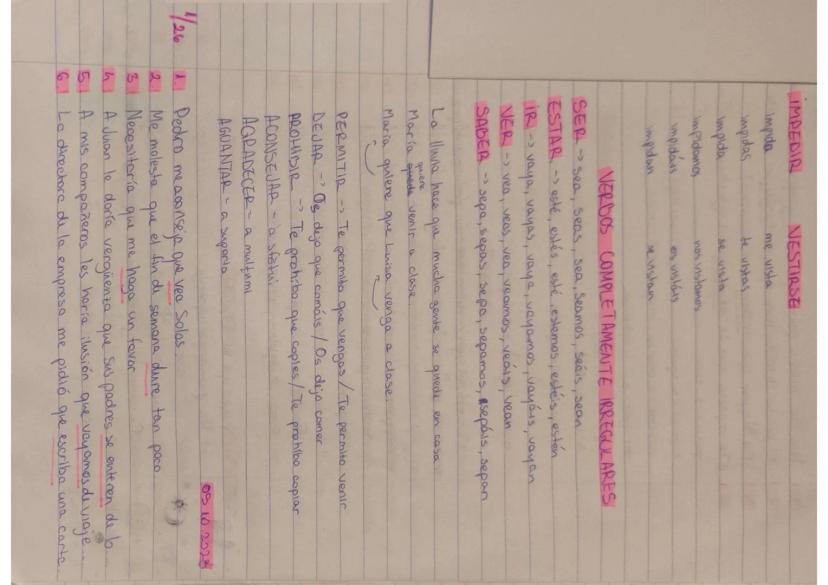 IMPEDIR VESTIRSE
impida me vista
impidas te vistas
impida se vista
impidamos nos vistamos
impidáis os vistáis
impidan se vistan
VERBOS COMPLETAMENTE IRREGULARES
SER -> sea, seas, sea, seamos, seáis, sean
ESTAR -> esté, estés, esté, estemos, estéis, estén
IR -> vaya, vayas, vaya, vayamos, vayáis, vayan
VER -> vea, veas, vea, veamos, veáis, vean
SABER -> sepa, sepas, sepa, sepamos, sepáis, sepan
La lluvia hace que mucha gente se quede en casa.
María quiere venir a clase.
María quiere que Luisa venga a clase.
PERMITIR -> Te permito que vengas / Te permito venir
DEJAR -> Os dejo que comáis / Os dejo comer
PROHIBIR -> Te prohibo que copies / Te prohibo copiar
ACONSEJAR = a sfătui
AGRADECER = a mulțumi
AGUANTAR = a suporta
09.10.2023
1/26 1 Pedro me aconseja que vea Solas.
2 Me molesta que el fin de semana dure tan poco.
3 Necesitaría que me haga un favor.
4 A Juan le daría vergüenza que sus padres se enteren de lo
5 A mis compañeros les haría ilusión que vayamos de viaje
6. La directora de la empresa me pidió que escriba una carta.